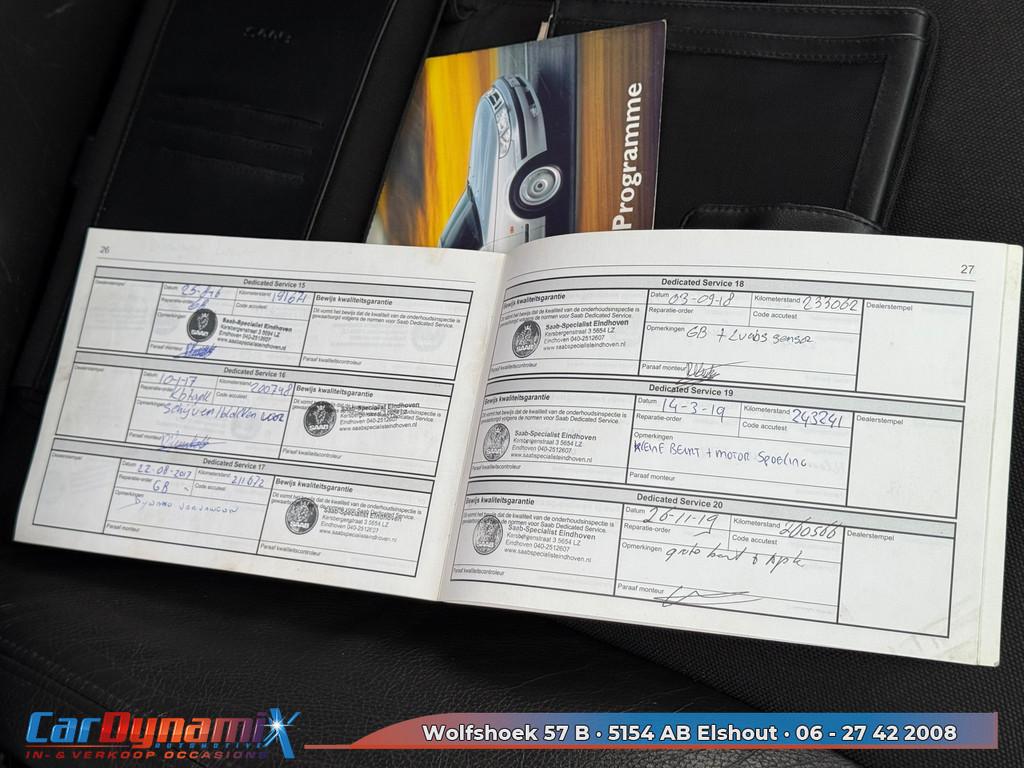 SAAB
Programme
26
Dedicated Service 15
Dealerstempel
Datum 25-8-16 Kilometerstand 191641
Reparatie-order GB Code accutest
Opmerkingen
Paraaf monteur
Bewijs kwaliteitsgarantie
Dit vormt het bewijs dat de kwaliteit van de onderhoudsinspectie is
gewaarborgd volgens de normen voor Saab Dedicated Service.
SAAB
Saab-Specialist Eindhoven
Kersbergenstraat 3 5654 LZ
Eindhoven 040-2512607
www.saabspecialisteindhoven.nl
Paraaf kwaliteitscontroleur
Dedicated Service 16
Dealerstempel
Datum 10-1-17 Kilometerstand 200748
Reparatie-order Code accutest
Opmerkingen Schijven/blokken voor
Paraaf monteur
Bewijs kwaliteitsgarantie
SAAB
Saab-Specialist Eindhoven
Kersbergenstraat 3 5654 LZ
Eindhoven 040-2512607
www.saabspecialisteindhoven.nl
Paraaf kwaliteitscontroleur
Dedicated Service 17
Dealerstempel
Datum 22-08-2017 Kilometerstand 211672
Reparatie-order GB Code accutest
Opmerkingen Dynamo vervangen
Paraaf monteur
Bewijs kwaliteitsgarantie
Saab-Specialist Eindhoven
Kersbergenstraat 3 5654 LZ
Eindhoven 040-2512607
www.saabspecialisteindhoven.nl
Paraaf kwaliteitscontroleur
27
Dedicated Service 18
Bewijs kwaliteitsgarantie
Dit vormt het bewijs dat de kwaliteit van de onderhoudsinspectie is
gewaarborgd volgens de normen voor Saab Dedicated Service.
SAAB
Saab-Specialist Eindhoven
Kersbergenstraat 3 5654 LZ
Eindhoven 040-2512607
www.saabspecialisteindhoven.nl
Paraaf kwaliteitscontroleur
Datum 03-09-18 Kilometerstand 233062
Reparatie-order Code accutest
Opmerkingen GB + Zuurs sensor
Paraaf monteur
Dealerstempel
Dedicated Service 19
Bewijs kwaliteitsgarantie
Dit vormt het bewijs dat de kwaliteit van de onderhoudsinspectie is
gewaarborgd volgens de normen voor Saab Dedicated Service.
Saab-Specialist Eindhoven
Kersbergenstraat 3 5654 LZ
Eindhoven 040-2512607
www.saabspecialisteindhoven.nl
Paraaf kwaliteitscontroleur
Datum 14-3-19 Kilometerstand 243241
Reparatie-order Code accutest
Opmerkingen
KLEINE BEURT + MOTOR SPOELING
Paraaf monteur
Dealerstempel
Dedicated Service 20
Bewijs kwaliteitsgarantie
Dit vormt het bewijs dat de kwaliteit van de onderhoudsinspectie is
gewaarborgd volgens de normen voor Saab Dedicated Service.
Saab-Specialist Eindhoven
Kersbergenstraat 3 5654 LZ
Eindhoven 040-2512607
www.saabspecialisteindhoven.nl
Paraaf kwaliteitscontroleur
Datum 26-11-19 Kilometerstand 260566
Reparatie-order Code accutest
Opmerkingen grote beurt + Apk
Paraaf monteur
Dealerstempel
CarDynamiX
AUTOMOTIVE
IN- & VERKOOP OCCASIONS
Wolfshoek 57 B • 5154 AB Elshout • 06 - 27 42 2008